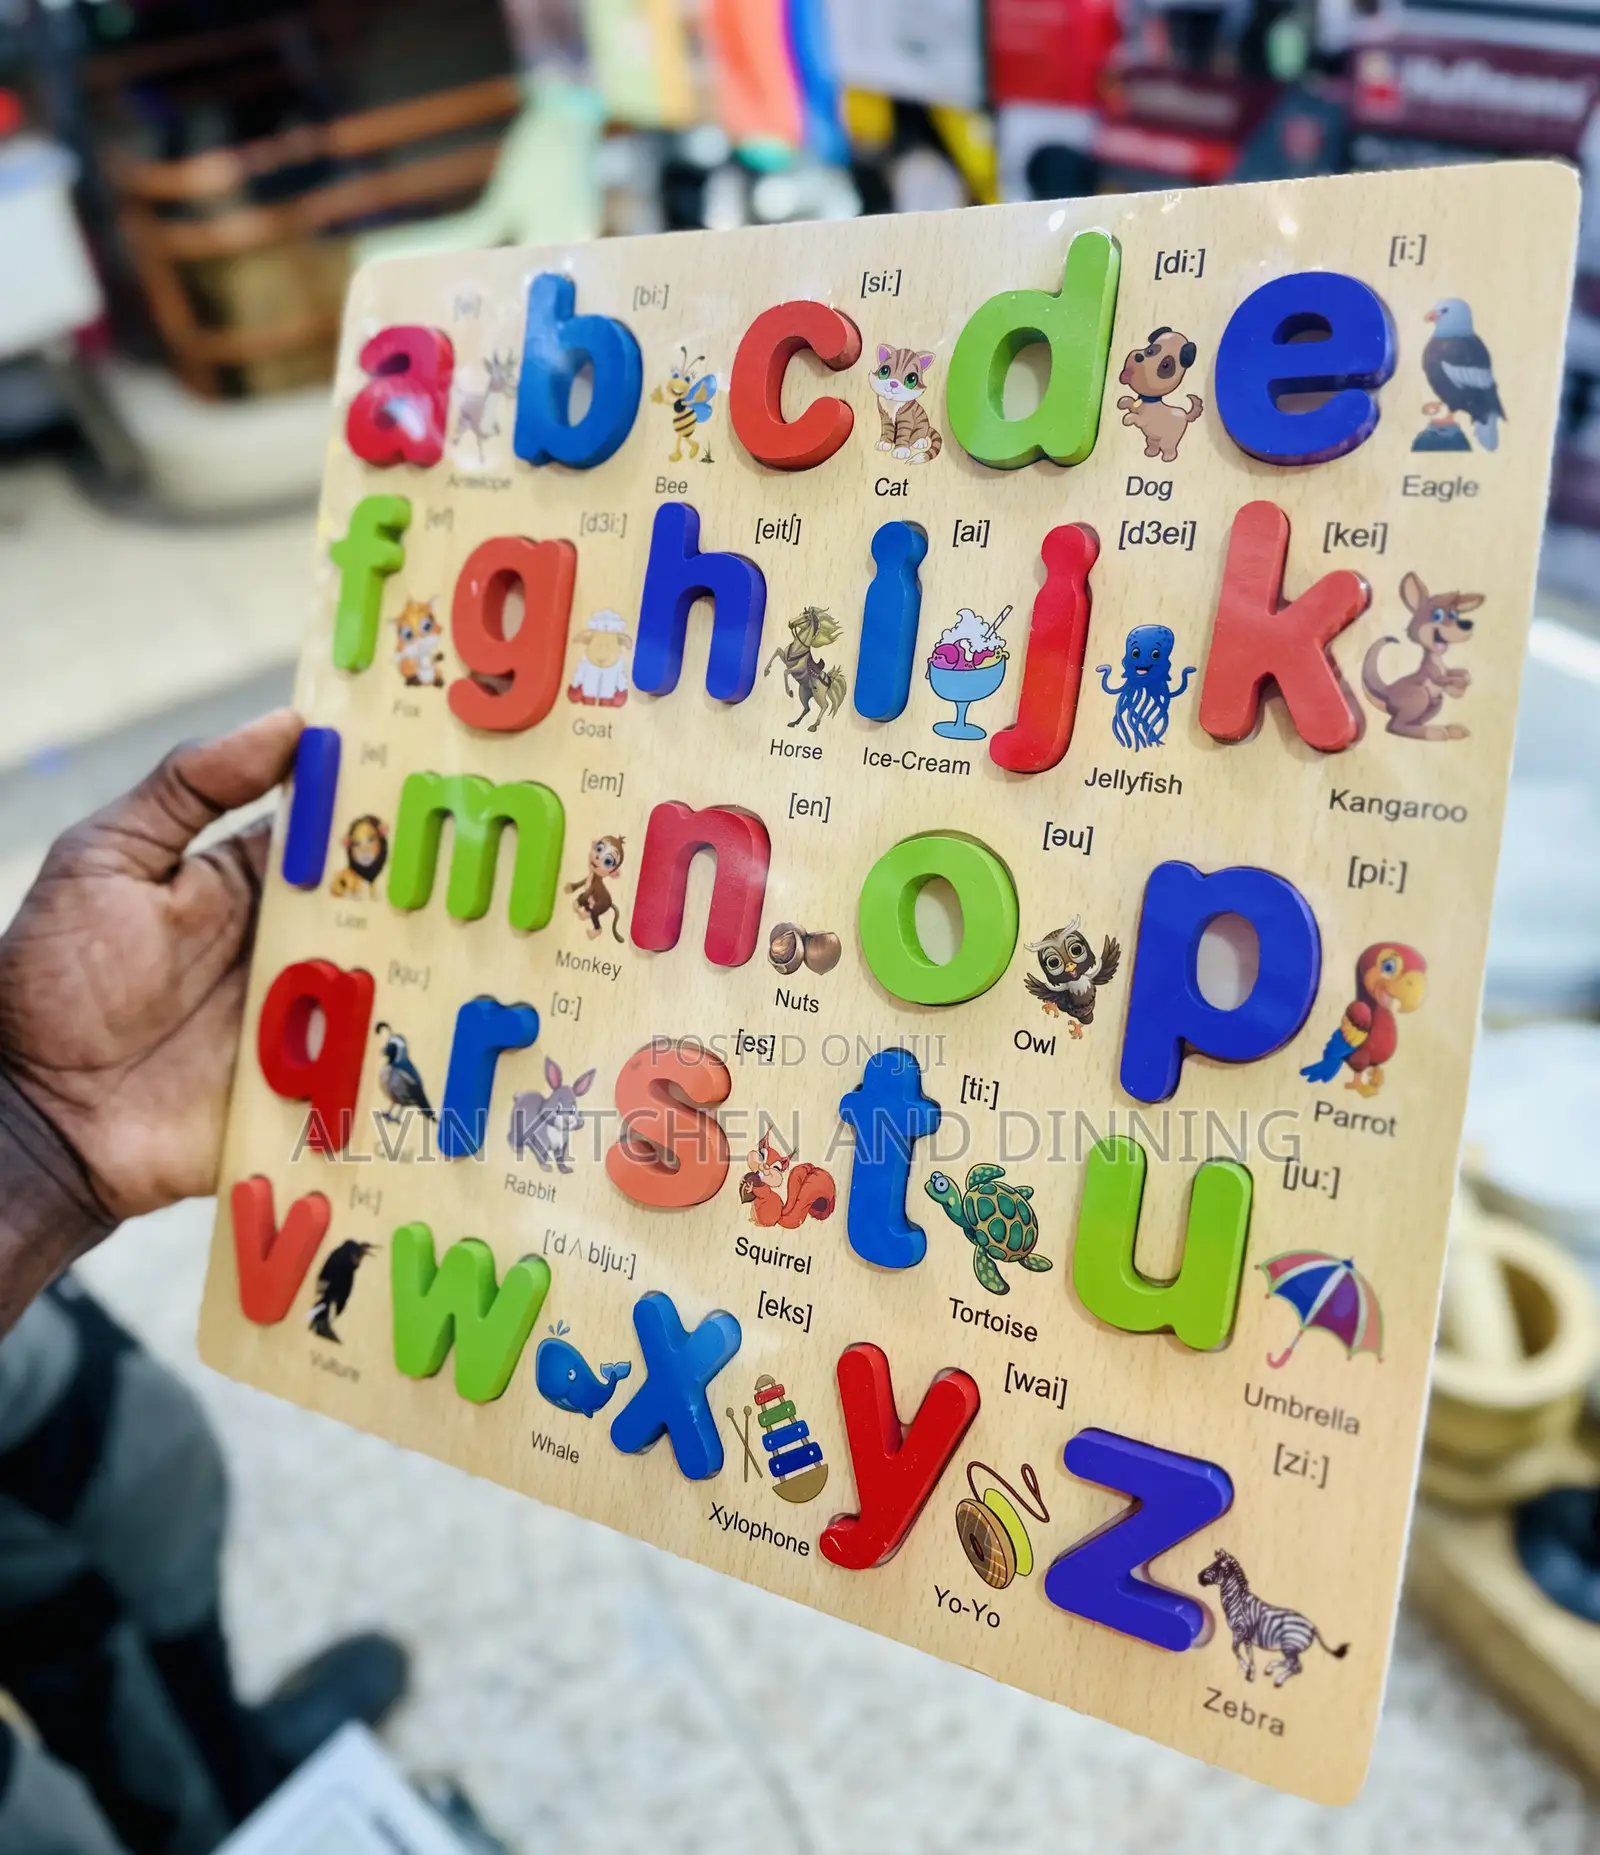 a [ei] b [bi:] c [si:] d [di:] e [i:]
Antelope Bee Cat Dog Eagle
f [ef] g [d3i:] h [eitʃ] i [ai] j [d3ei] k [kei]
Fox Goat Horse Ice-Cream Jellyfish Kangaroo
l [el] m [em] n [en] o [əu] p [pi:]
Lion Monkey Nuts Owl Parrot
q [kju:] r [ɑ:] s [es] t [ti:] u [ju:]
Rabbit Squirrel Tortoise Umbrella
v [vi:] w ['dʌblju:] x [eks] y [wai] z [zi:]
Vulture Whale Xylophone Yo-Yo Zebra
POSTED ON JIJI
ALVIN KITCHEN AND DINNING